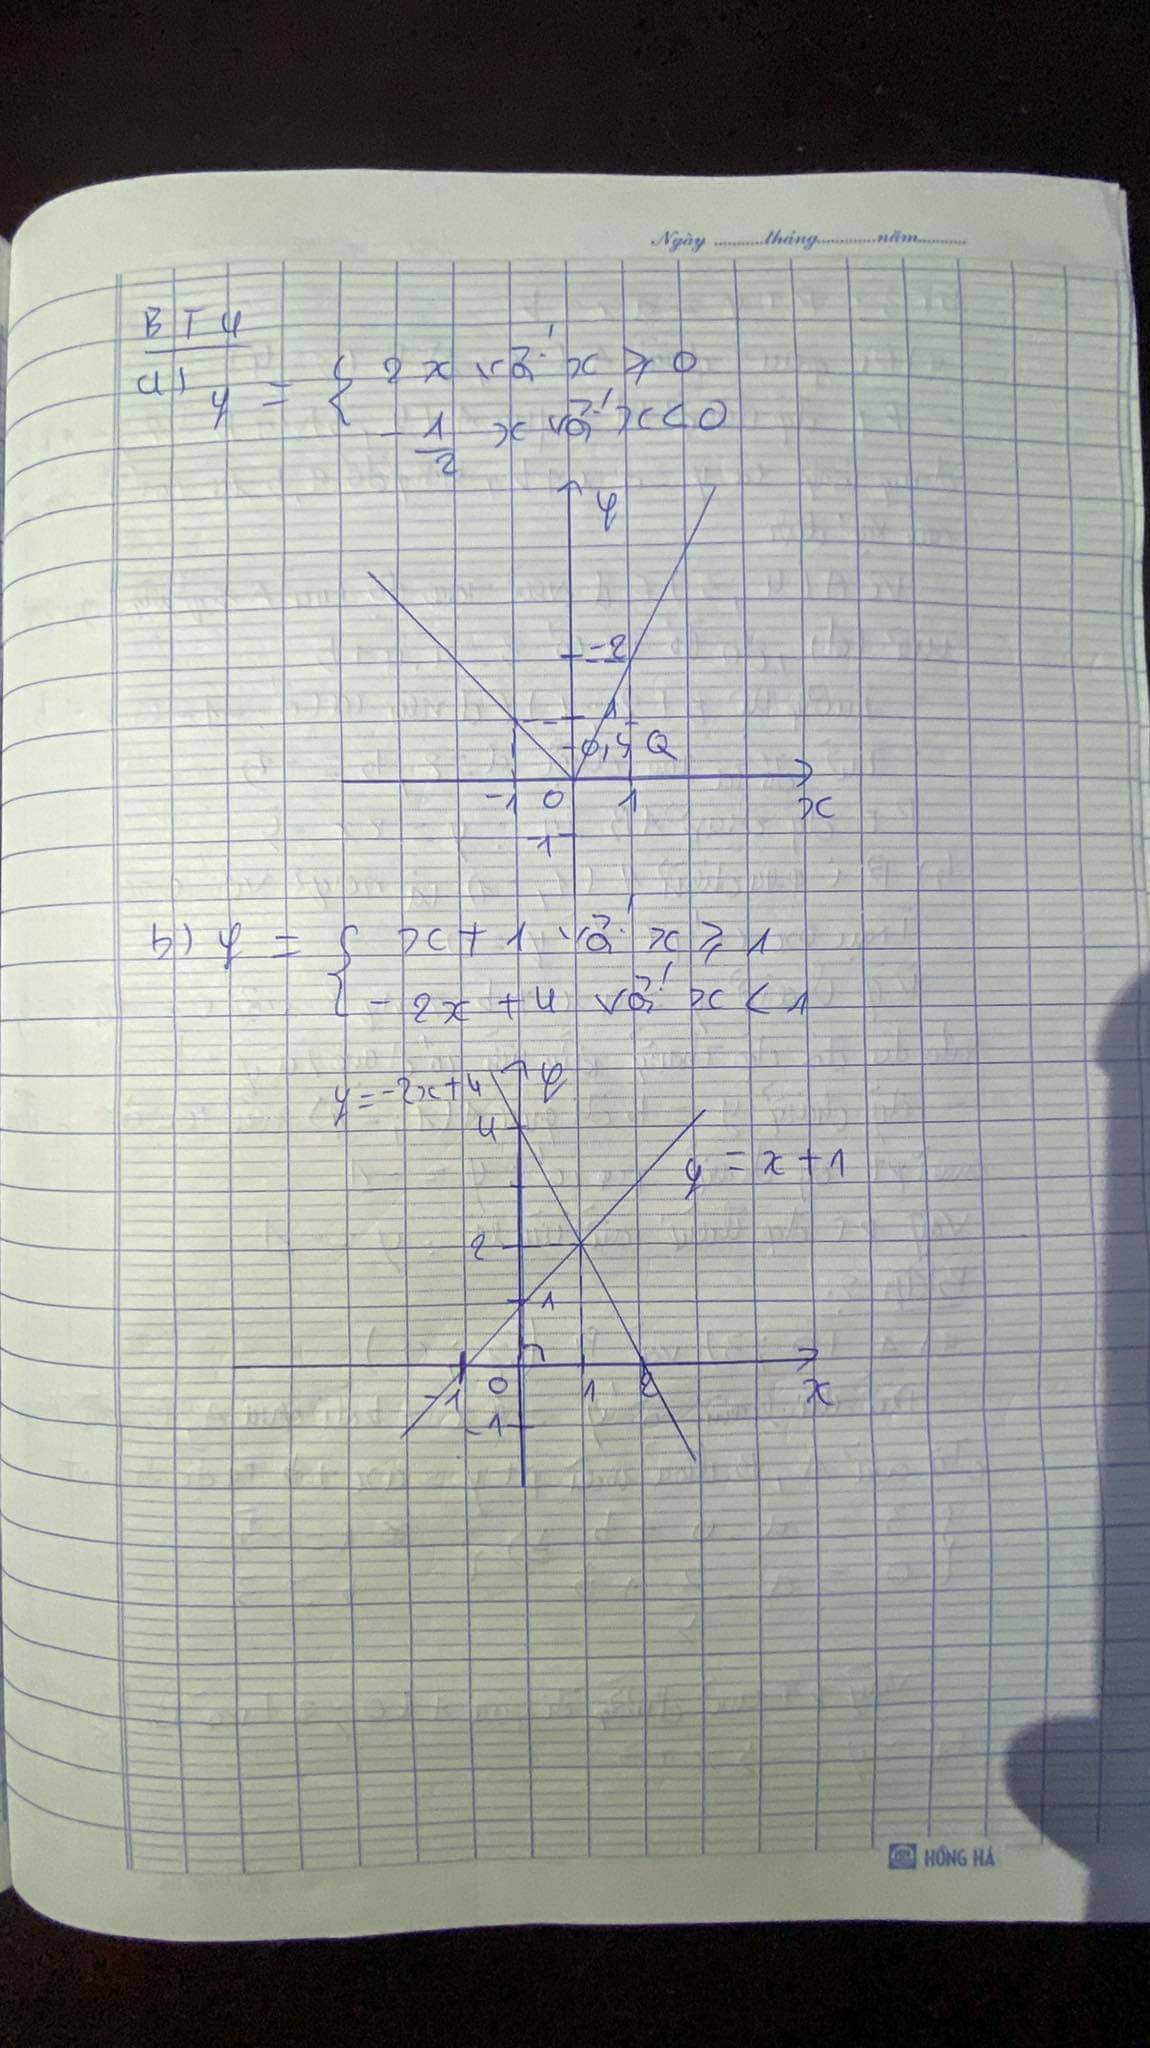 Ngày ............tháng.............năm...........
BT4
a) y = { 2x với x ≥ 0
- 1/2 x với x < 0
y
-2
1
0,5
-1 0 1 x
-1
b) y = { x + 1 với x ≥ 1
- 2x + 4 với x < 1
y = -2x + 4 y
4
y = x + 1
2
1
-1 0 1 2 x
-1
HỒNG HÀ